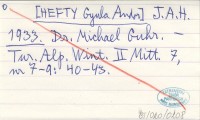 [HEFTY Gyula Andor] J.A.H.
1933. Dr. Michael Guhr. –
Tur. Alp. Wint. II Mitt. 7,
nr 7-9: 40-43.